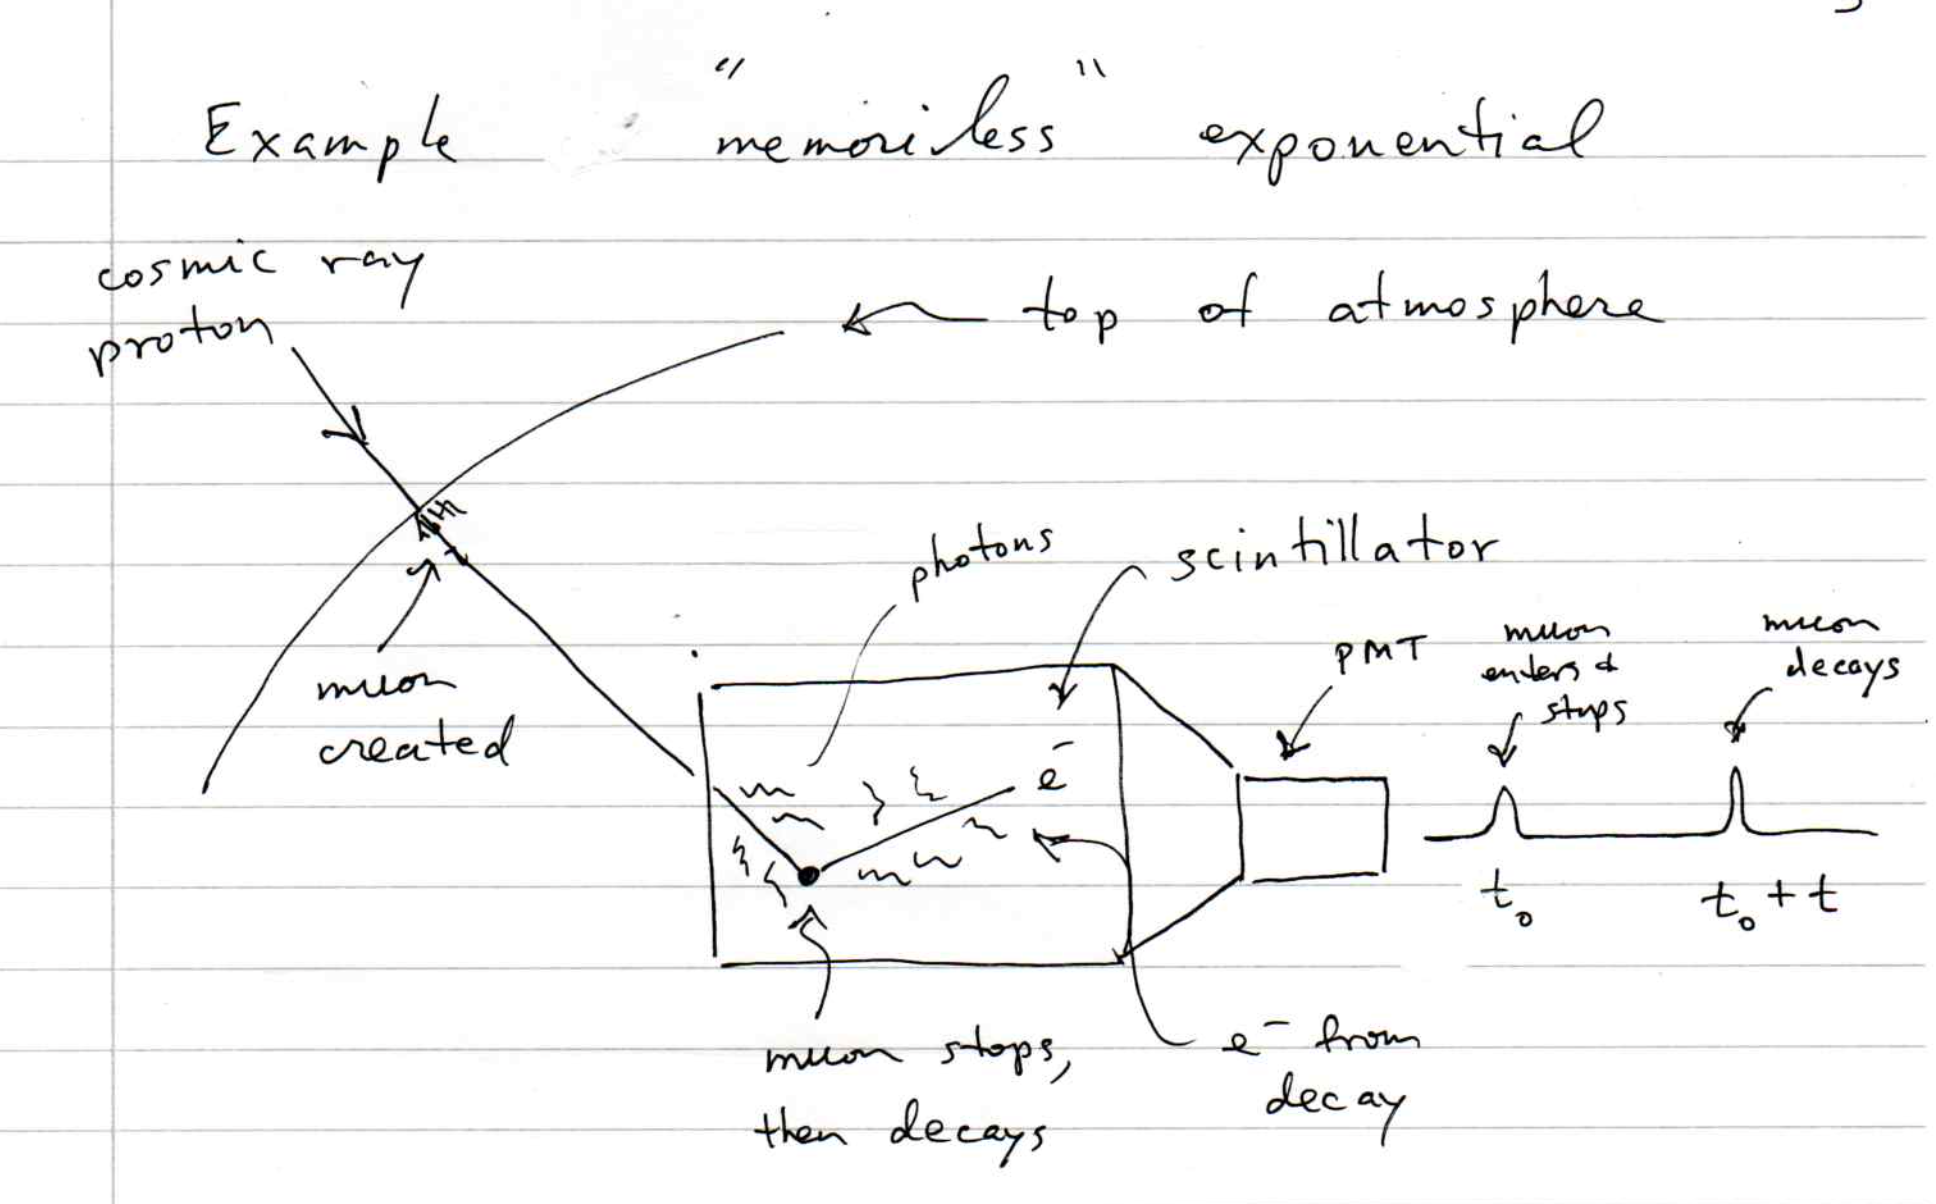 Example "memoriless" exponential
cosmic ray
proton
top of atmosphere
muon
created
photons
scintillator
PMT
muon
enters &
stops
muon
decays
e⁻
t₀
t₀ + t
muon stops,
then decays
e⁻ from
decay